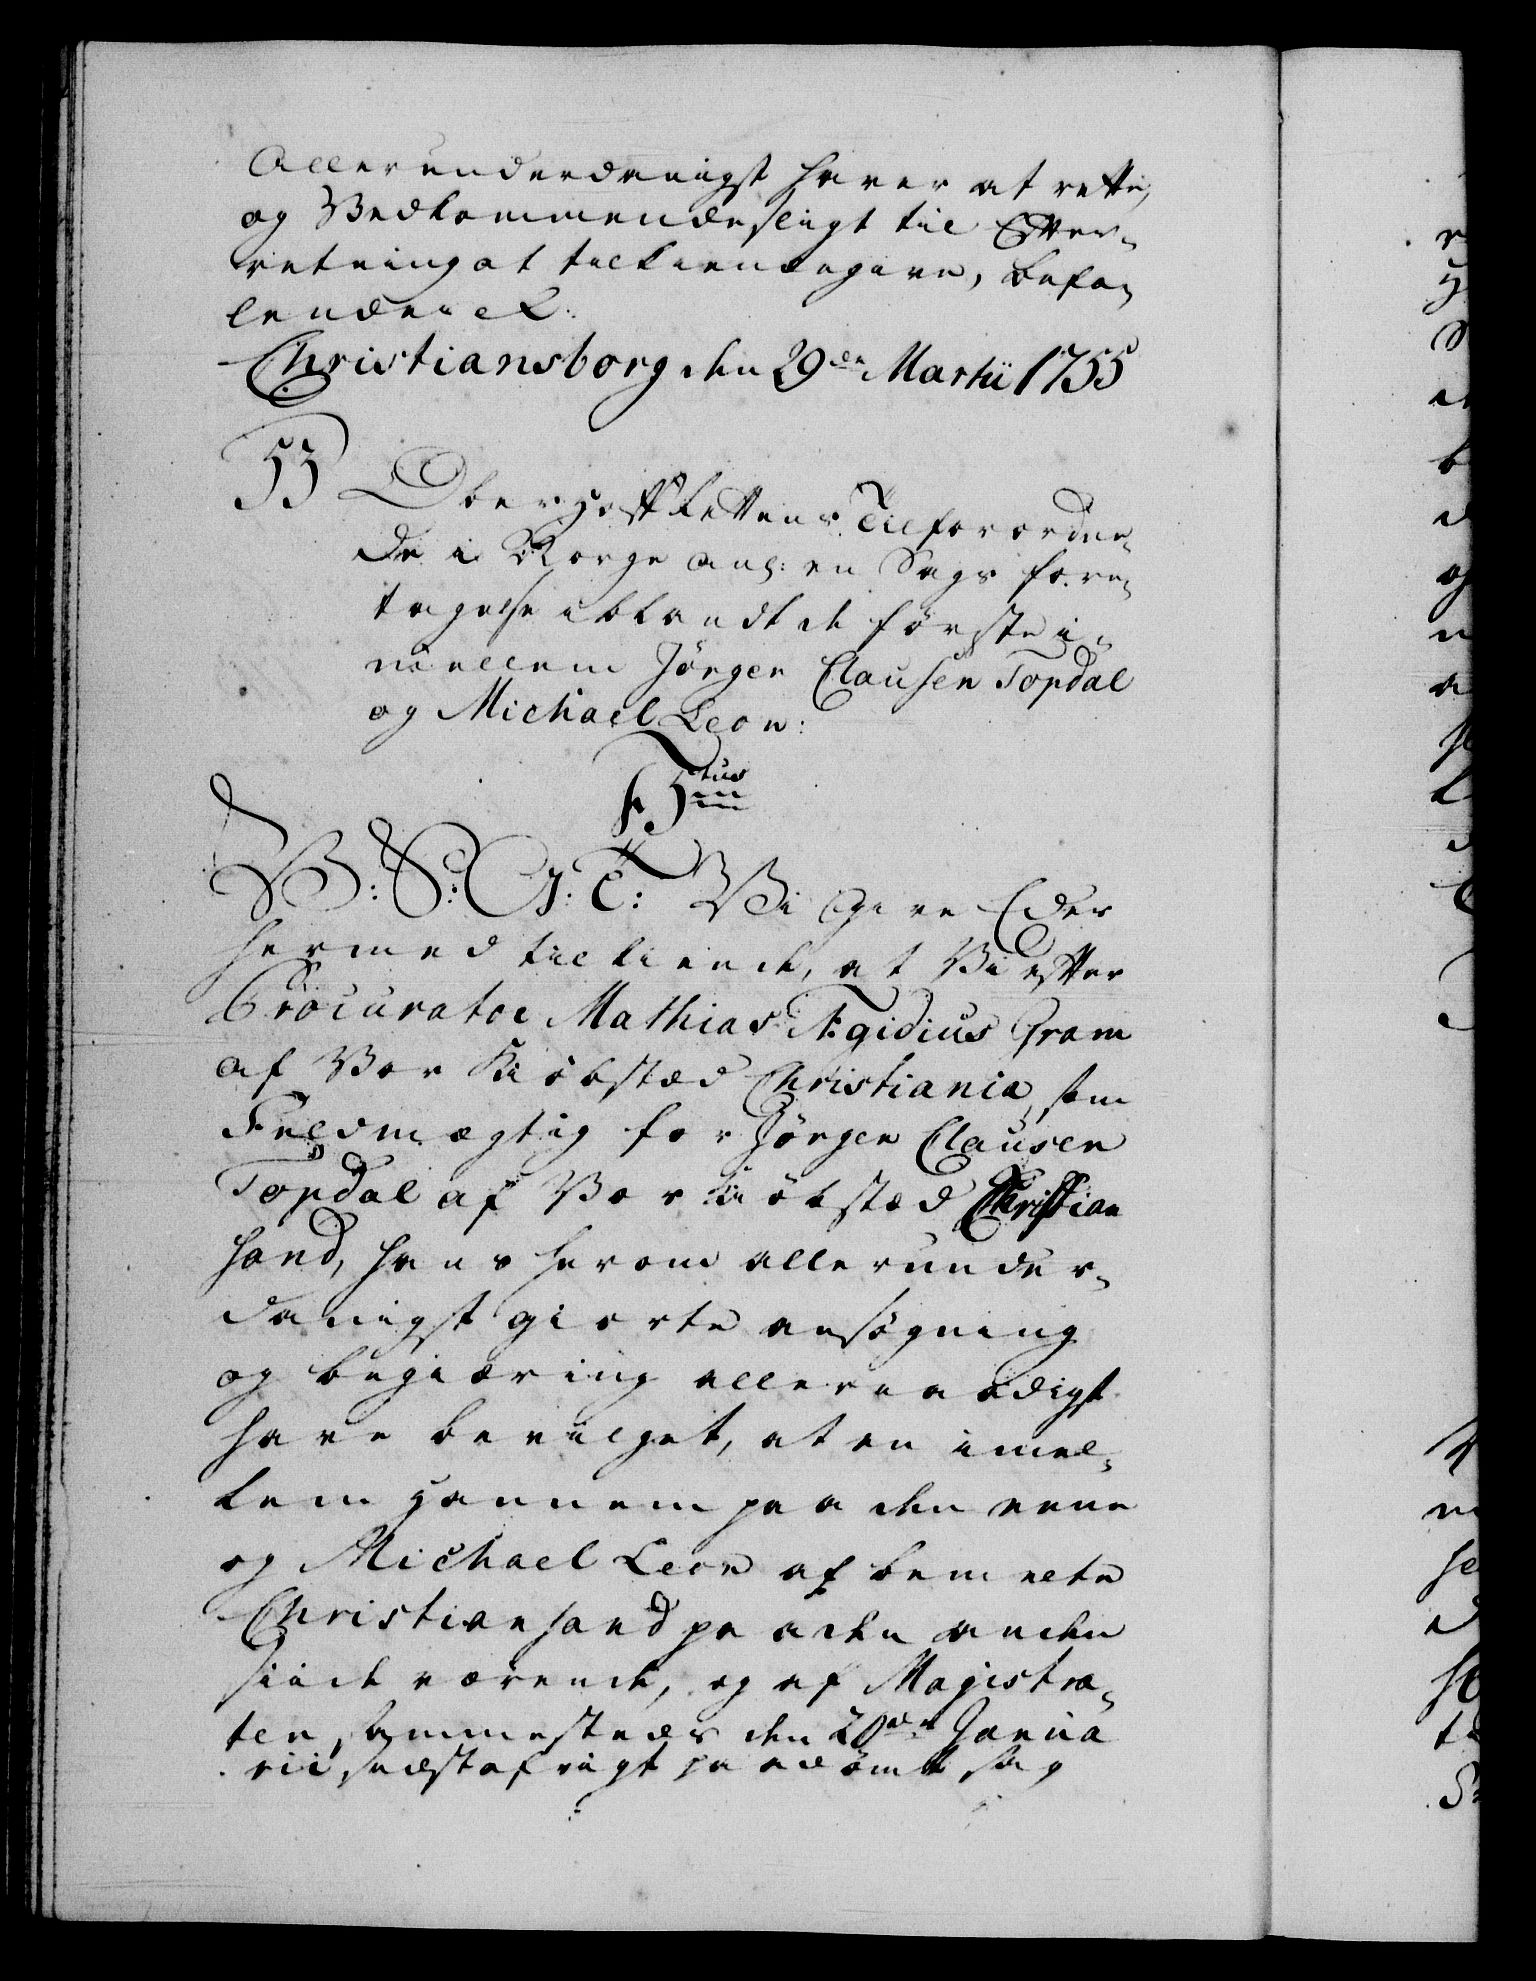 Allerunderdanigst haver at rette,
og Vedkommende sligt til Efter-
retning at tilkiendegive, befa-
lende etc.
Christiansborg den 29de Martii 1755
53 Oberhoff Rettens Tilforordne-
de i Norge anl: en Sags fore-
tagelse iblandt de første i-
mellem Jörgen Clausen Topdal
og Michael Leon:
F 5tus
V: S: G: T: Vi give Eder
hermed tilkiende, at Vi efter
Procurator Mathias Ægidius Gram
af Vor Kiöbstæd Christiania, som
Fuldmægtig for Jörgen Clausen
Topdal af Vor Kiöbstæd Christian
sand, hans herom allerunder-
danigst giorte ansøgning
og begiæring allernaadigst
have bevilget, at en imel-
lem hannem paa den eene
og Michael Leon af bemelte
Christiansand paa den anden
siide værende, og af Magistra-
ten sammesteds den 20de Janua
rii sidst afvigt paadömt sag